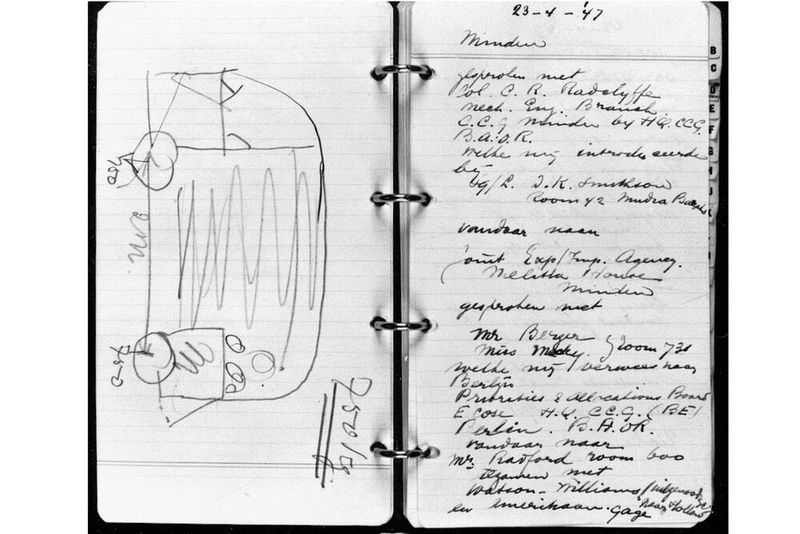 750
2 m.
750
750 kg
23-4-'47
Minden
gesproken met
Col. C. R. Radclyffe
Mech. Eng. Branch
C.C.G Minden by H.Q. CCG.
B.A.O.R.
welke mij introduceerde
bij
D.K. Smithson
Room 42 Mudra
vandaar naar
Joint Exp/Imp. Agency.
Melitta House
Minden
gesproken met
Mr Berger
Miss room 731
welke mij verwees naar
Berlijn
Priorities & Allocations Board
Ecose H.Q. CC.G. (BE)
Berlin. B.A.O.R.
vandaar naar
Mr. Radford room 600
tezamen met
Watson-Williams
en Amerikaan. Gage
B
C
D
E
F
G
H